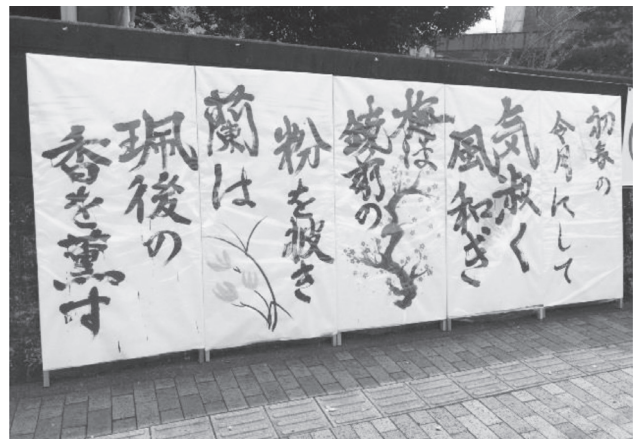 初春の
令月にして
気淑く
風和ぎ
梅は
鏡前の
粉を披き
蘭は
珮後の
香を薫す